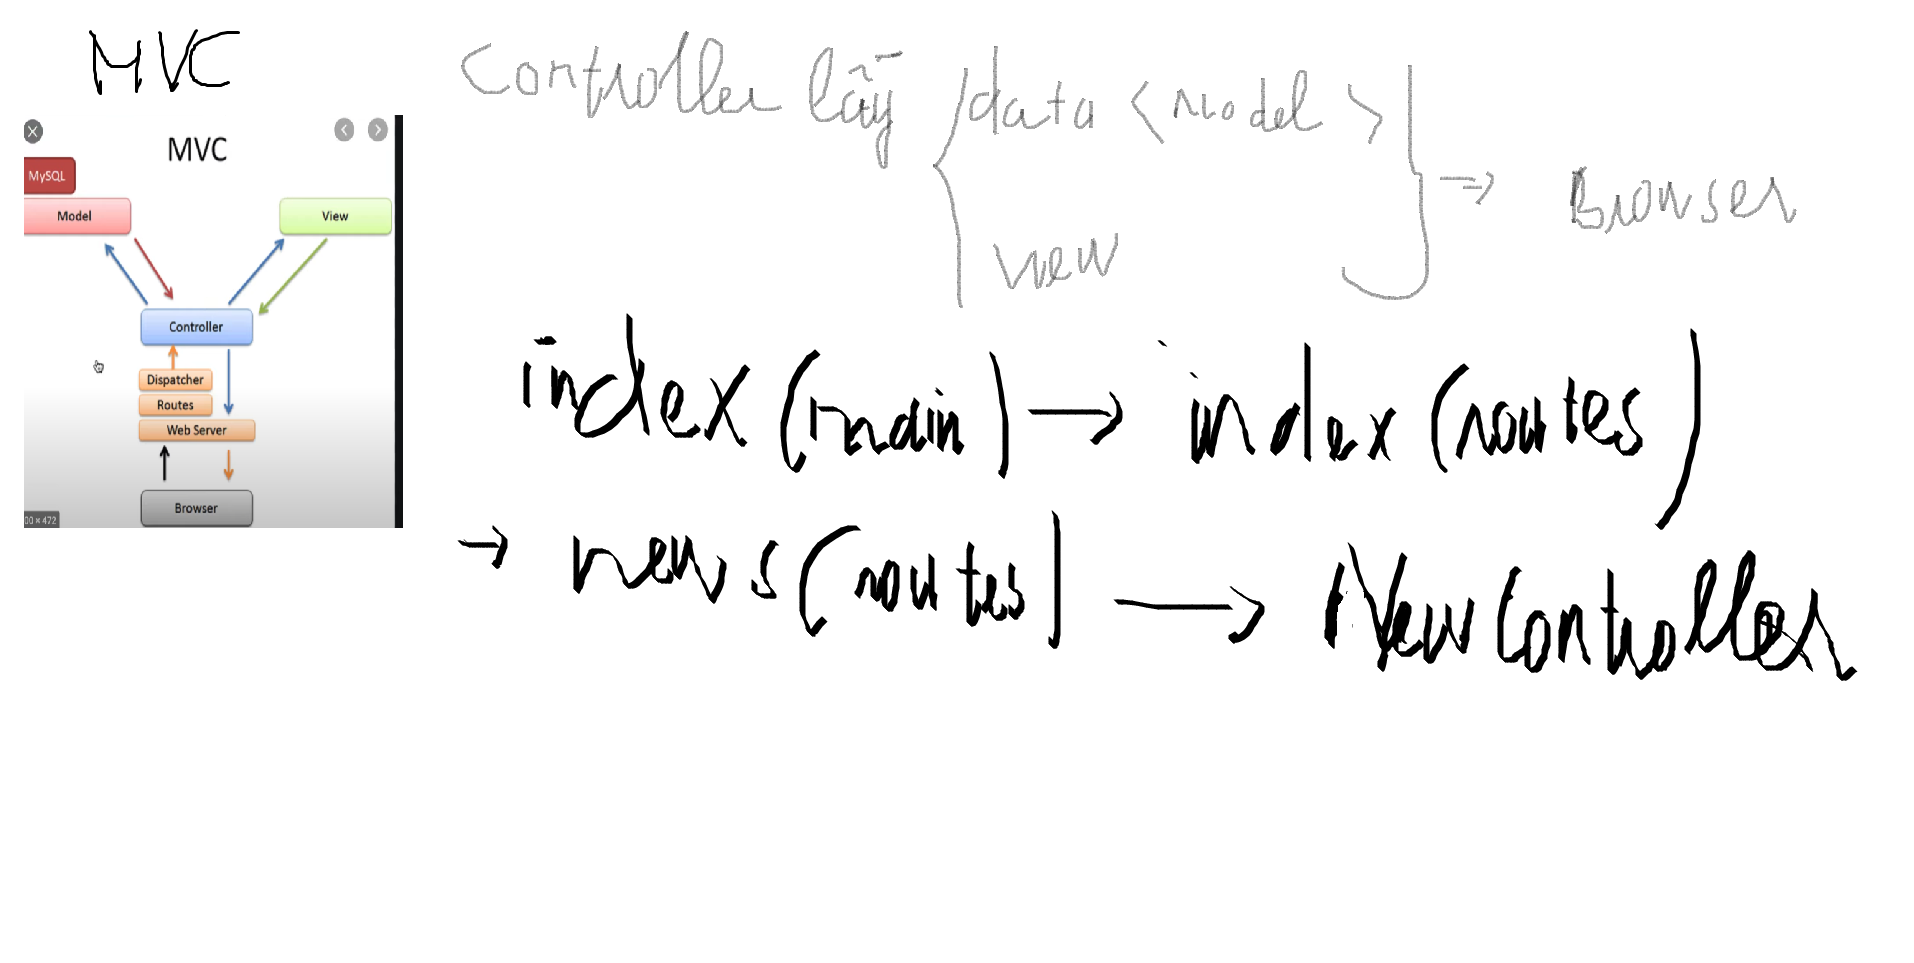 MVC
MVC
MySQL
Model
View
Controller
Dispatcher
Routes
Web Server
Browser
00 × 472
Controller lấy { data <model> } → Browser
view
index (main) → index (routes)
→ news (routes) → NewController